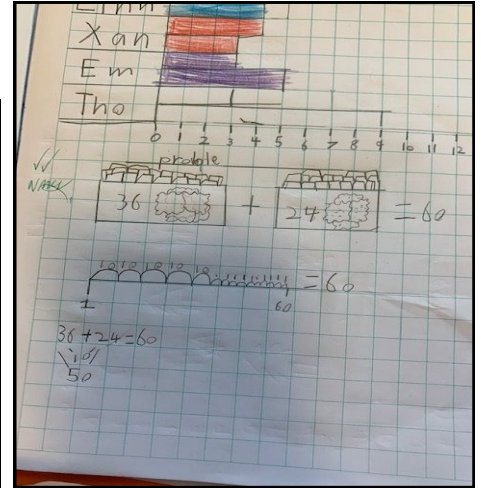 Xan
Em
Tho
0 1 2 3 4 5 6 7 8 9 10 11 12
proble
36 + 24 = 60
10 10 10 10 10
= 60
1 60
36 + 24 = 60
10
50